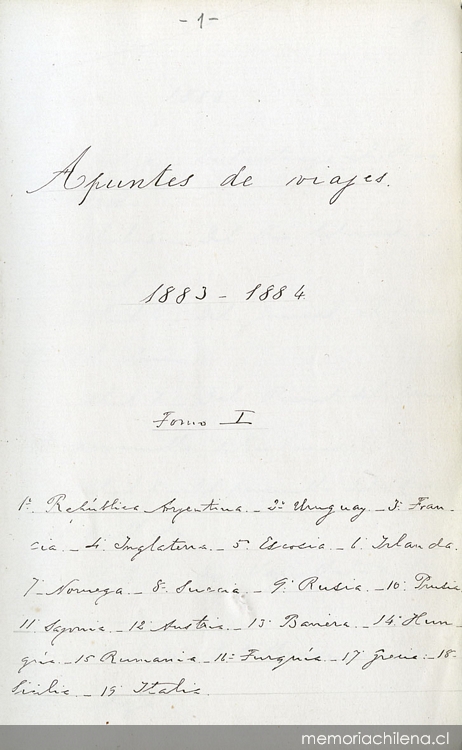 - 1 -
Apuntes de viajes.
1883 - 1884
Tomo I
1º República Argentina. - 2º Uruguay - 3º Fran-
cia. - 4º Inglaterra. - 5º Escosia. - 6º Irlanda.
7º Noruega. - 8º Suecia. - 9º Rusia. - 10º Prusia
11 Sajonia. - 12 Austria. - 13º Baviera. - 14º Hun-
gria. - 15 Rumania. - 16º Turquía. - 17º Grecia. - 18-
Sicilia. - 19º Italia.
memoriachilena.cl